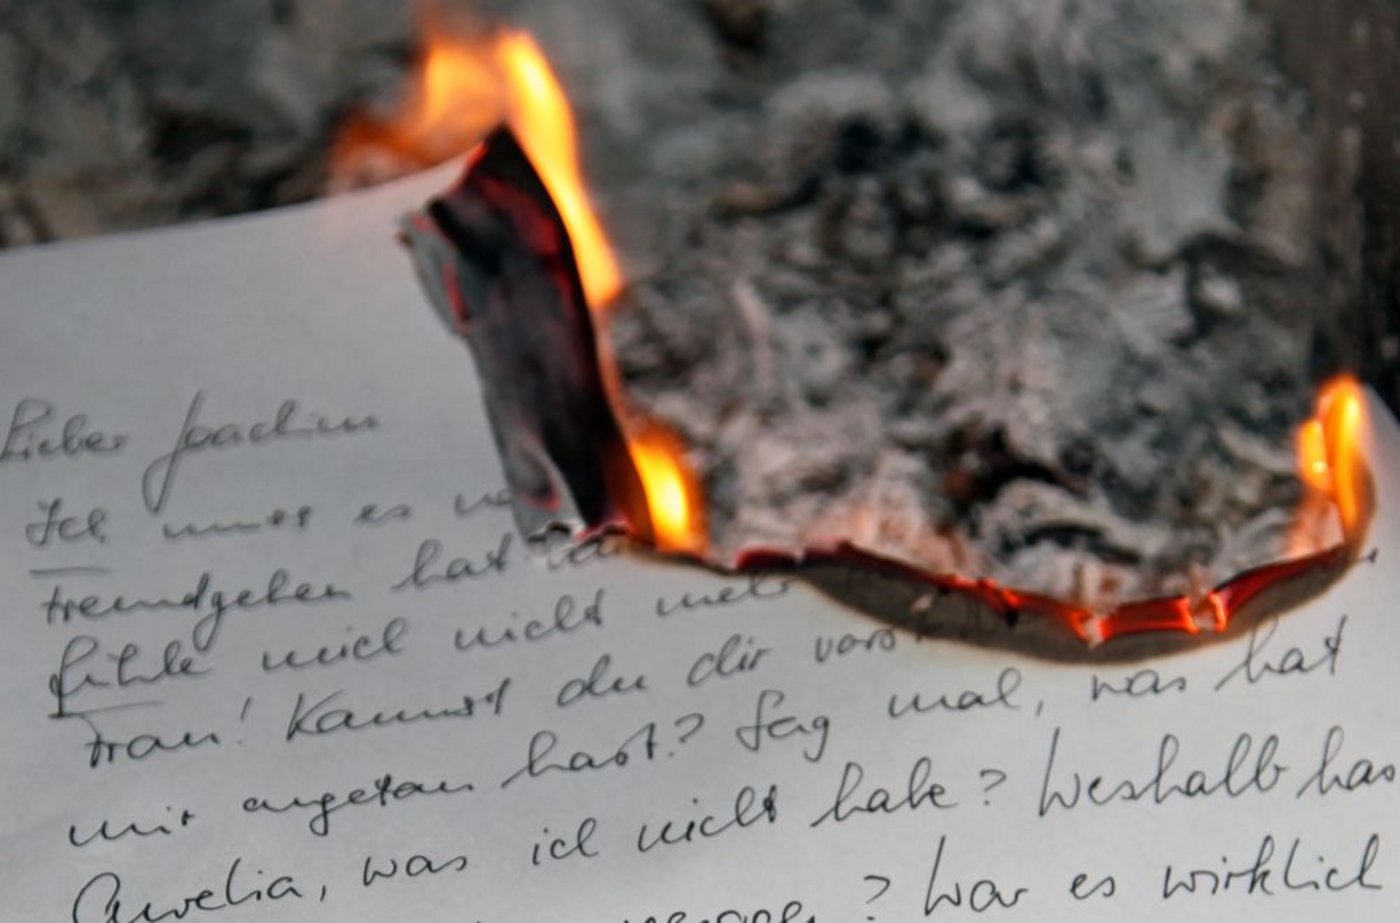 Lieber Joachim
Ich muss es
fremdgehen hat
fühle mich nicht mehr
Frau! Kannst du dir
mir angetan hast? Sag mal, was hat
Aurelia, was ich nicht habe? Weshalb has
? War es wirklich